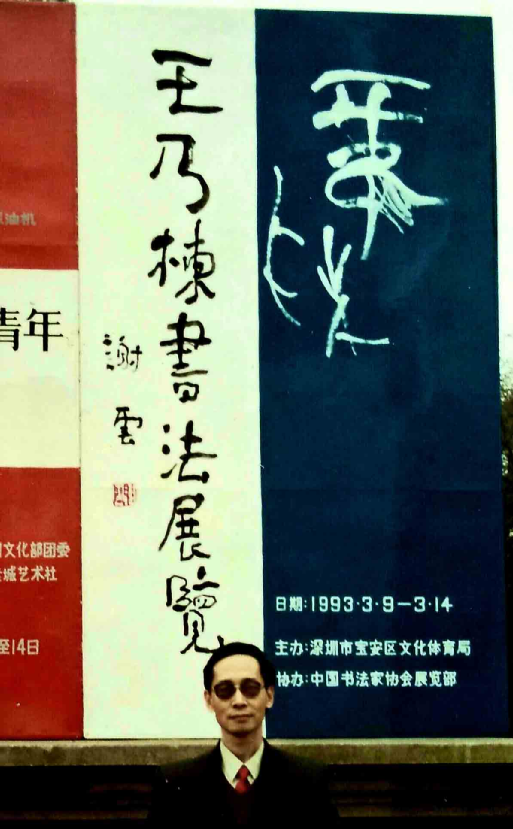 王乃棟書法展覽
謝雲
日期:1993·3·9—3·14
主办:深圳市宝安区文化体育局
协办:中国书法家协会展览部
油机
青年
文化部团委
城艺术社
至14日